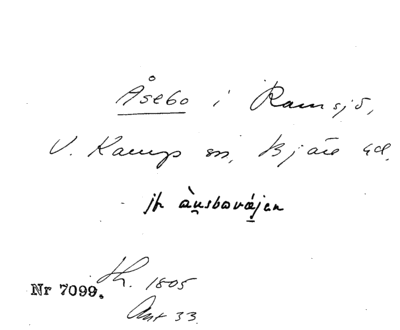 Åsebo i Ramsjö,
V. Karup sn, Bjäre hd.
jfr àusbovä́jen
Nr 7099.
Lh. 1805
Ant 33.